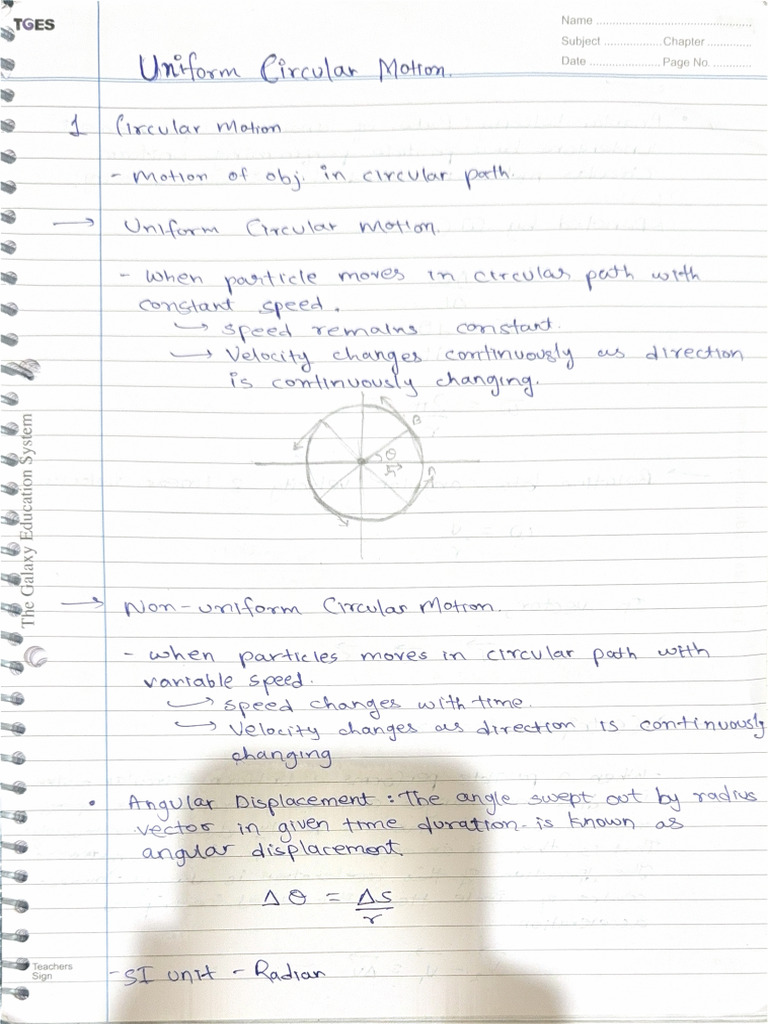 TGES
Name
Subject Chapter
Date Page No.
Uniform Circular Motion.
1 Circular Motion
- Motion of obj. in circular path.
→ Uniform Circular Motion.
- When particle moves in circular path with
constant speed.
↪ speed remains constant.
↪ Velocity changes continuously as direction
is continuously changing.
B
θ
The Galaxy Education System
→ Non-uniform Circular Motion.
- when particles moves in circular path with
variable speed.
↪ speed changes with time.
↪ Velocity changes as direction is continuously
changing
• Angular Displacement : The angle swept out by radius
vector in given time duration is known as
angular displacement
Δθ = Δs
r
- SI unit - Radian
Teachers
Sign